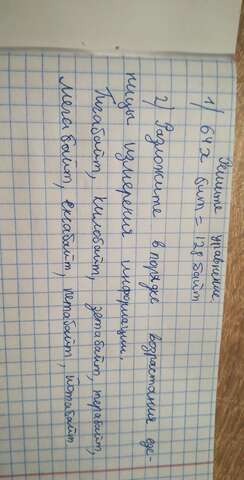 Решите уравнение.
1) 64x бит = 128 байт
2) Разложите в порядке возрастания еде-
ницы измерения информации.
Гигабайт, килобайт, зетабайт, терабайт,
Мегабайт, эксабайт, петабайт, йотабайт.